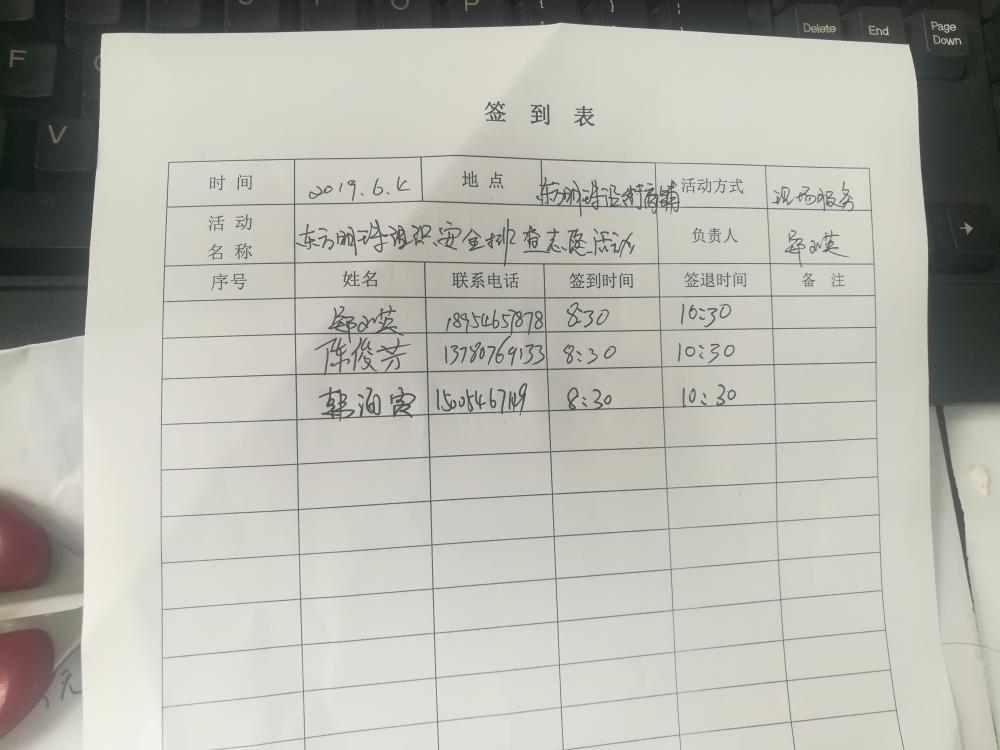 Delete End Page Down
F
V
签到表
时间 2019.6.4 地点 东方明珠沿街商铺 活动方式 现场服务
活动名称 东方明珠组织安全排查志愿活动 负责人
序号 姓名 联系电话 签到时间 签退时间 备注
18954657878 8:30 10:30
陈俊芳 13780769133 8:30 10:30
韩海霞 8:30 10:30